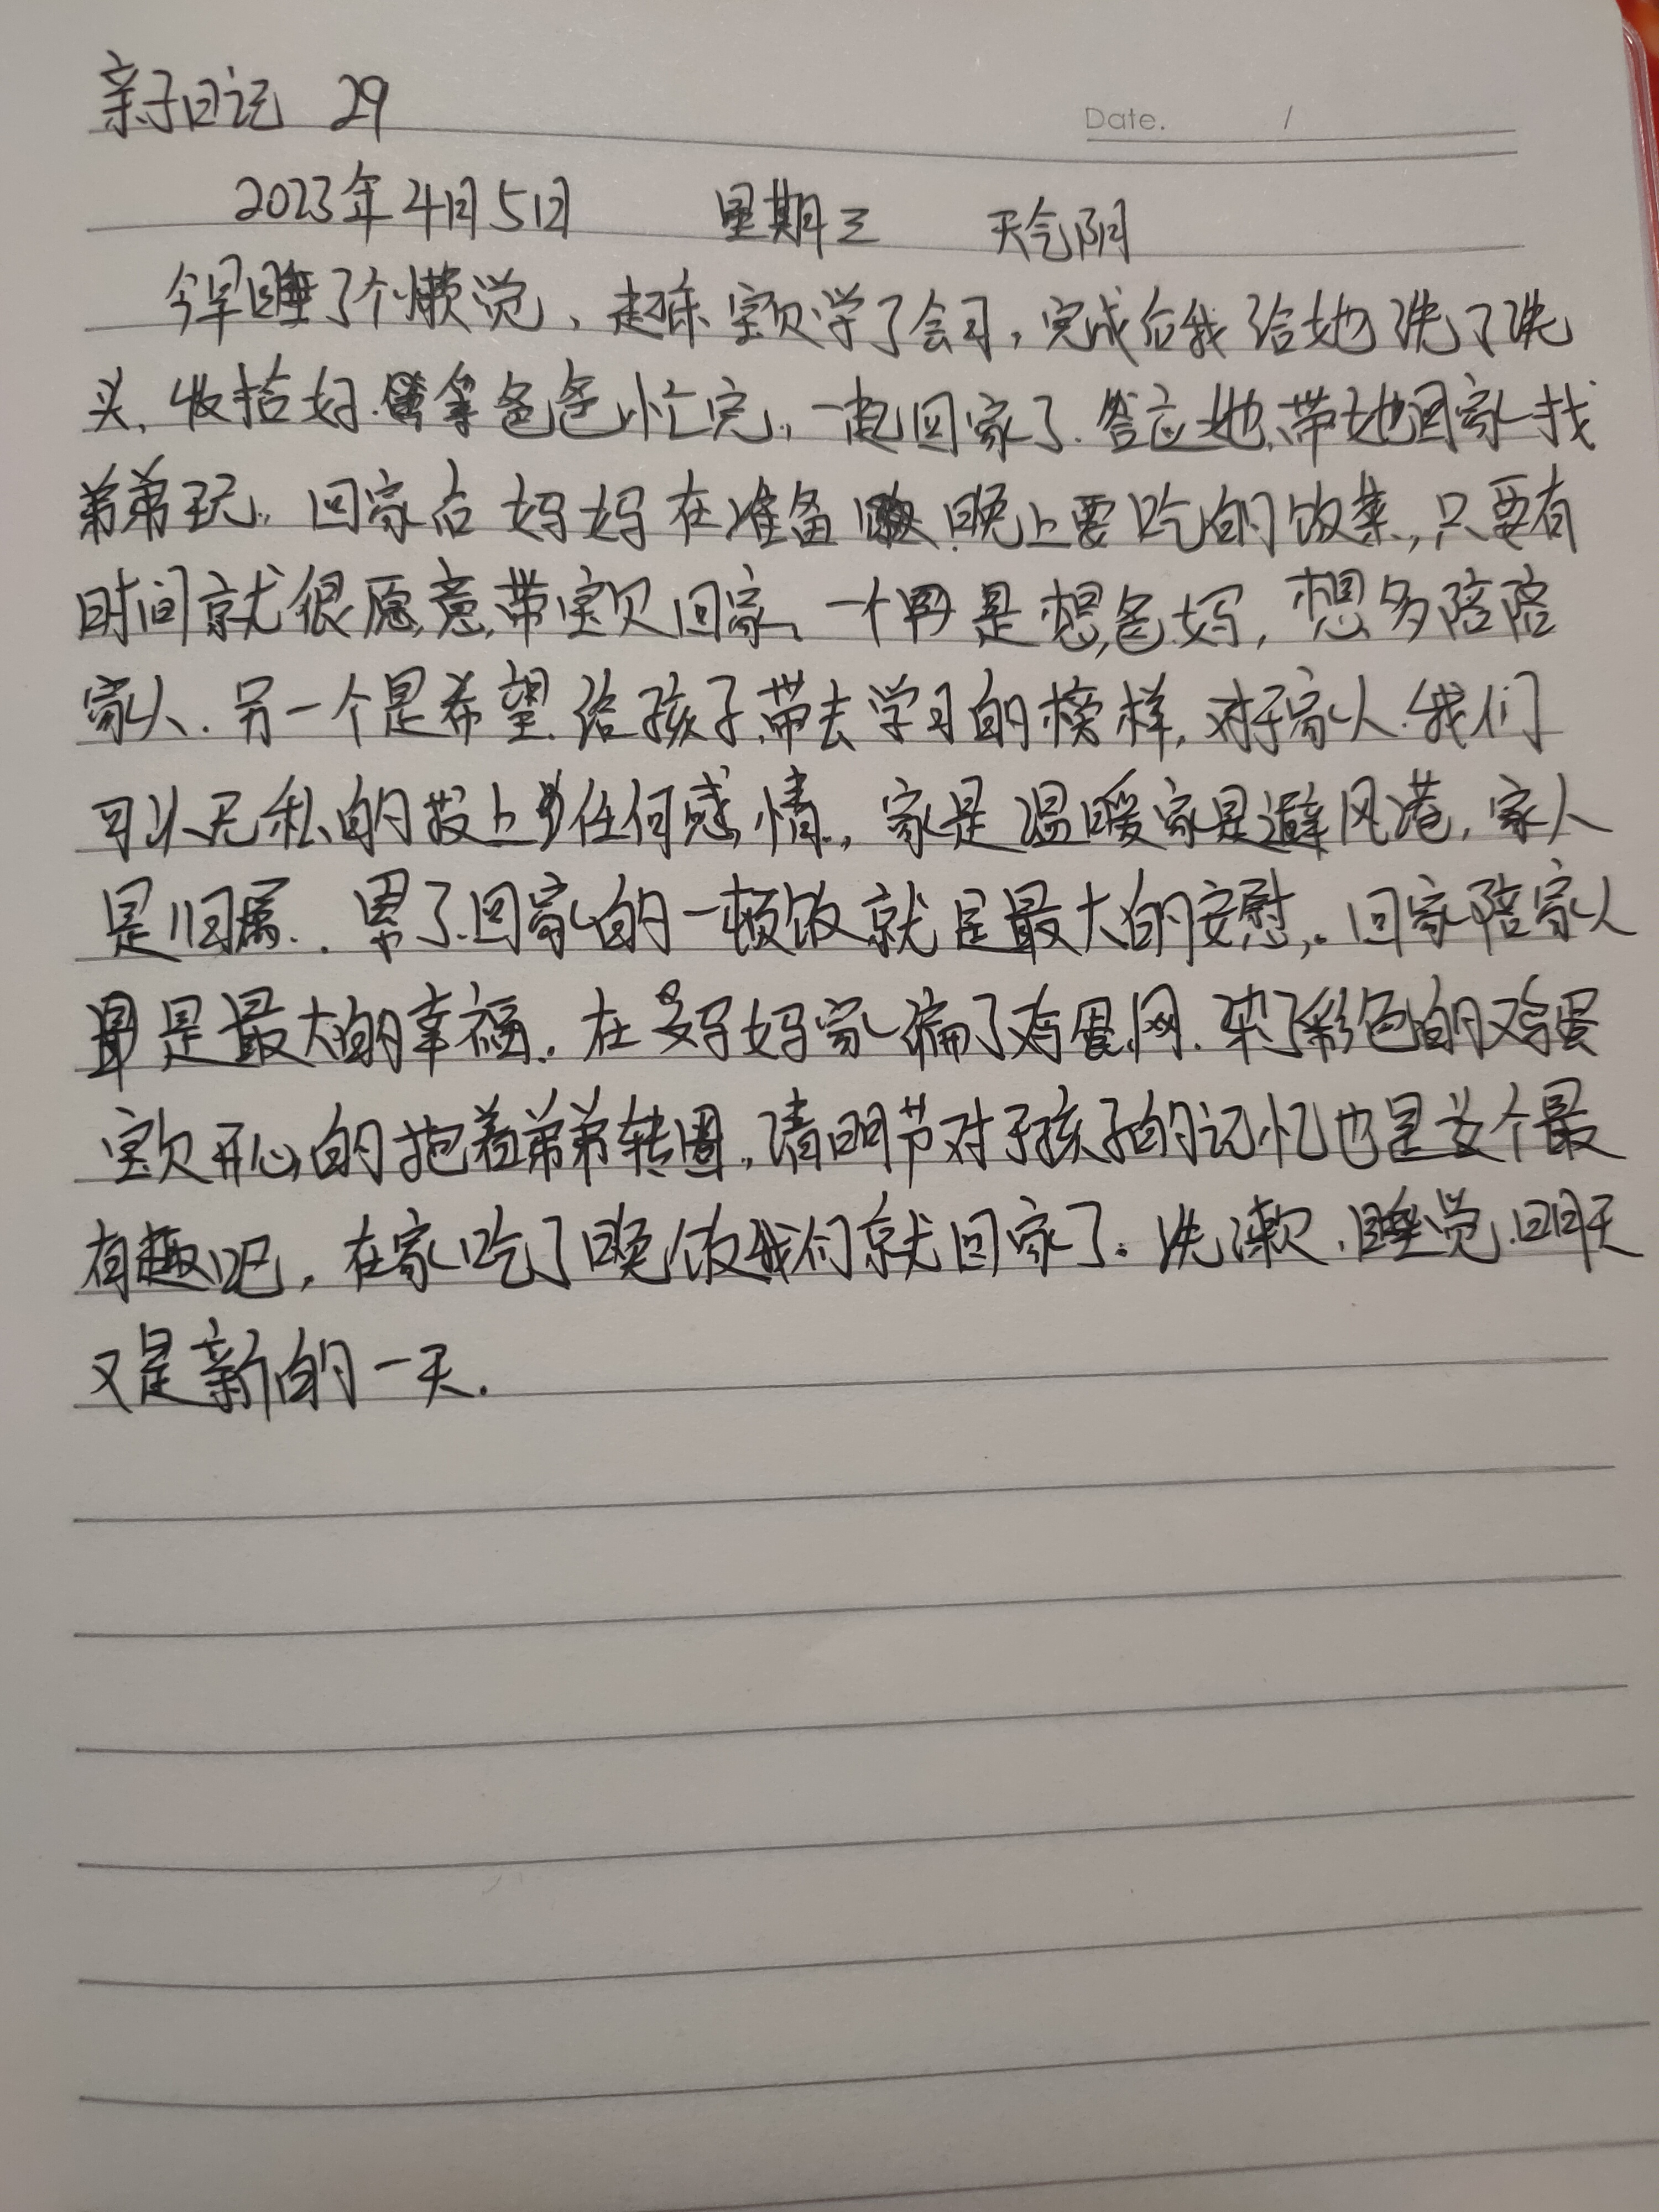 亲子日记 29
Date. /
2023年4月5日 星期三 天气阴
今早睡了个懒觉、起来宝贝学了会习,完成后我给她洗了洗
头,收拾好.等爸爸忙完,一起回家了.答应她,带她回家找
弟弟玩,回家后妈妈在准备晚上要吃的饭菜,只要有
时间就很愿意,带宝贝回家,一个是想爸妈,想多陪陪
家人.另一个是希望给孩子带去学习的榜样,对于家人.我们
可以无私的投上任何感情.,家是温暖家是避风港,家人
是归属..累了.回家的一顿饭就是最大的安慰,.回家陪家人
是最大的幸福.在妈妈家编了鸡蛋网.染了彩色的鸡蛋
宝贝开心的抱着弟弟转圈,清明节对于孩子的记忆也是这个最
有趣吧,在家吃了晚饭我们就回家了。洗漱、睡觉.明天
又是新的一天.